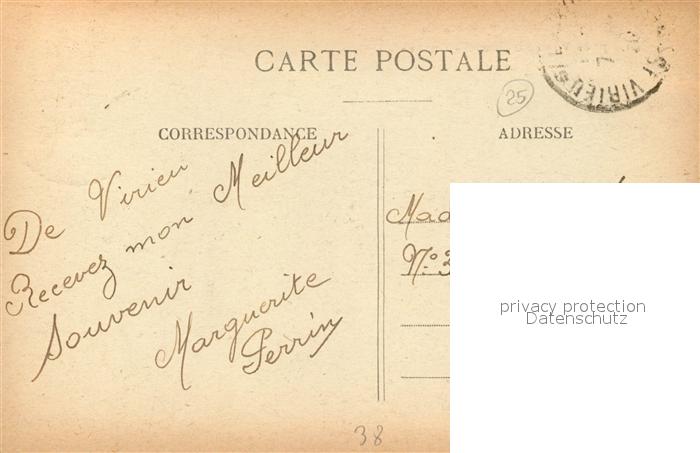 CARTE POSTALE
25
VIRIEU
CORRESPONDANCE
De Virieu
Recevez mon Meilleur
Souvenir
Marguerite
Perrin
ADRESSE
Mad
N° 3
privacy protection
Datenschutz
38